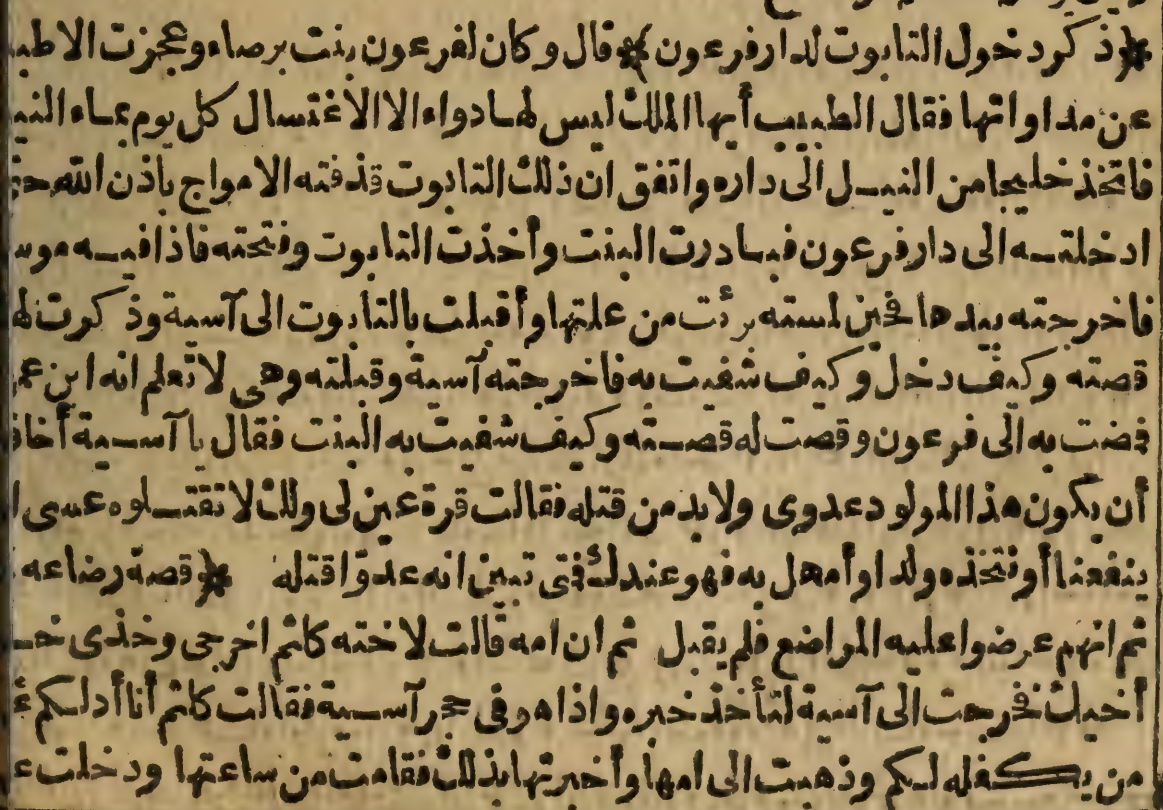 ﴿ذكر دخول التابوت لدار فرعون﴾ قال وكان لفرعون بنت برصاء وعجزت الاطب
عن مداواتها فقال الطبيب أيها الملك ليس لها دواء الا الاغتسال كل يوم بماء الني
فاتخذ خليجا من النيل الى داره واتفق ان ذلك التابوت قذفته الامواج باذن الله حتى
ادخلته الى دار فرعون فبادرت البنت وأخذت التابوت وفتحته فاذا فيه موس
فاخرجته بيدها فحين لمسته برئت من علتها وأقبلت بالتابوت الى آسية وذكرت لها
قصته وكيف دخل وكيف شفيت به فاخرجته آسية وقبلته وهى لا تعلم انه ابن عم
فمضت به الى فرعون وقصت له قصته وكيف شفيت به البنت فقال يا آسية أخاف
أن يكون هذا المولود عدوى ولابد من قتله فقالت قرة عين لى ولك لا تقتلوه عسى ا
ينفعنا أو نتخذه ولدا وأمهل به فهو عندك فمتى تبين انه عدو اقتله ﴿قصة رضاعه
ثم انهم عرضوا عليه المراضع فلم يقبل ثم ان امه قالت لاخته كلثم اخرجى وخذى خـ
أخيك فخرجت الى آسية لتأخذ خبره واذا هو فى حجر آسية فقالت كلثم أنا أدلكم ع
من يكفله لكم وذهبت الى امها وأخبرتها بذلك فقامت من ساعتها ودخلت ع